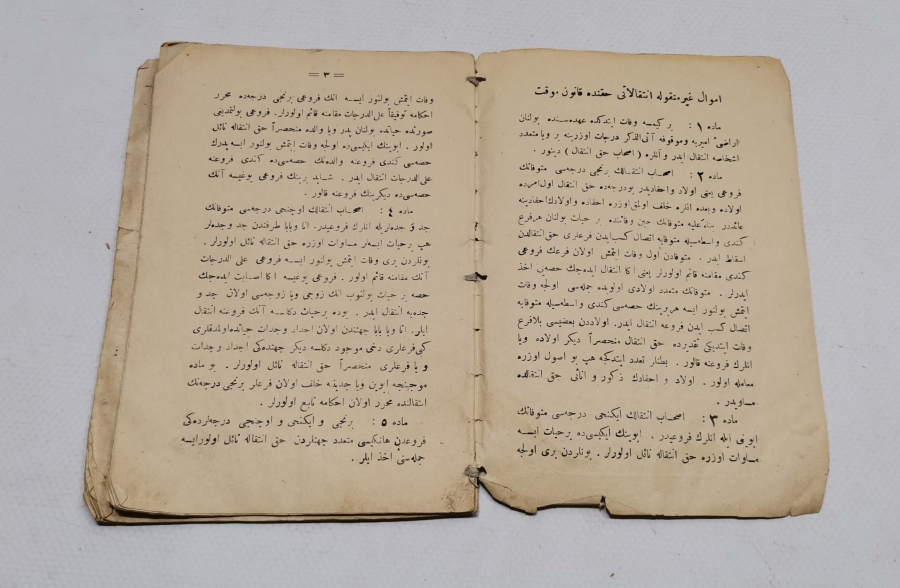 اموال غیر منقوله انتقالاتی حقنده قانون موقت
ماده ۱ : بر کیمسه وفات ایتدکده عهده‌سنده بولنان
اراضیٔ امیریه وموقوفه آتی‌الذکر درجات اوزرینه بر ویا متعدد
اشخاصه انتقال ایدر و آنلره ( اصحاب حق انتقال ) دینور .
ماده ۲ : اصحاب انتقالک برنجی درجه‌سی متوفانک
فروعی یعنی اولاد واحفادیدر بودرجه‌ده حق انتقال اول‌امرده
اولاده وبعده انلره خلف اولق‌اوزره احفاده واولاداحفادینه
عائددر بناءً علیه متوفانک حین وفاتنده بر حیات بولنان هرفرع
کندی واسطه‌سیله متوفایه اتصال کسب‌ایدن فرعلری حق‌انتقالدن
اسقاط ایدر . متوفادن اول وفات ایتمش اولان فرعک فروعی
کندی مقامنه قائم اولورلر یعنی اکا انتقال ایده‌جک حصه‌یی اخذ
ایدرلر . متوفانک متعدد اولادی اولوبده جمله‌سی اولجه وفات
ایتمش بولنور ایسه هربرینک حصه‌سی کندی واسطه‌سیله متوفایه
اتصال کسب ایدن فروعنه انتقال ایدر. اولاددن بعضیسی بلافرع
وفات ایتدیکی تقدیرده حق انتقال منحصراً دیکر اولاده ویا
انلرک فروعنه قالور . بطنلر تعدد ایتدکجه هپ بو اصول اوزره
معامله اولور . اولاد و احفادک ذکور و اناثی حق انتقالده
مساویدر .
ماده ۳ : اصحاب انتقالک ایکنجی درجه‌سی متوفانک
ابوینی ایله انلرک فروعیدر . ابوینک ایکیسی‌ده برحیات ایسه
مساوات اوزره حق انتقاله نائل اولورلر . بونلردن بری اولجه
= ۳ =
وفات ایتمش بولنور ایسه انک فروعی برنجی درجه‌ده محرر
احکامه توفیقاً علی‌الدرجات مقامنه قائم اولورلر. فروعی بولنمدیغی
صورتده حیاتده بولنان پدر ویا والده منحصراً حق انتقاله نائل
اولور . ابوینک ایکیسی‌ده اولجه وفات ایتمش بولنور ایسه پدرک
حصه‌سی کندی فروعنه والده‌نک حصه‌سی‌ده کندی فروعنه
علی‌الدرجات انتقال ایدر . شاید برینک فروعی یوغیسه آنک
حصه‌سی‌ده دیکرینک فروعنه قالور .
ماده ٤ : اصحاب انتقالک اوچنجی درجه‌سی متوفانک
جد و جده‌لریله انلرک فروعیدر. انا ویابابا طرفندن جد وجده‌لر
هپ برحیات ایسه‌لر مساوات اوزره حق انتقاله نائل اولورلر .
بونلردن بری وفات ایتمش بولنور ایسه فروعی علی الدرجات
آنک مقامنه قائم اولور . فروعی یوغیسه اکا اصابت ایده‌جک
حصه برحیات بولنوب انک زوجی ویا زوجه‌سی اولان جد و
جده‌یه انتقال ایدر . بوده برحیات دکلسه آنک فروعنه انتقال
ایلر. انا ویا بابا جهتندن اولان اجداد وجدات حیاتده‌اولمدقلری
کبی‌فرعلری دخی موجود دکلسه دیکر جهتده‌کی اجداد وجدات
ویا فرعلری منحصراً حق انتقاله نائل اولورلر . بو ماده
موجبنجه ابوین ویا جدینه خلف اولان فرعلر برنجی درجه‌نک
انتقالنده محرر اولان احکامه تابع اولورلر .
ماده ٥ : برنجی و ایکنجی و اوچنجی درجه‌لرده‌کی
فروعدن هانکیسی متعدد جهتلردن حق انتقاله نائل اولورایسه
جمله‌سنی اخذ ایلر .